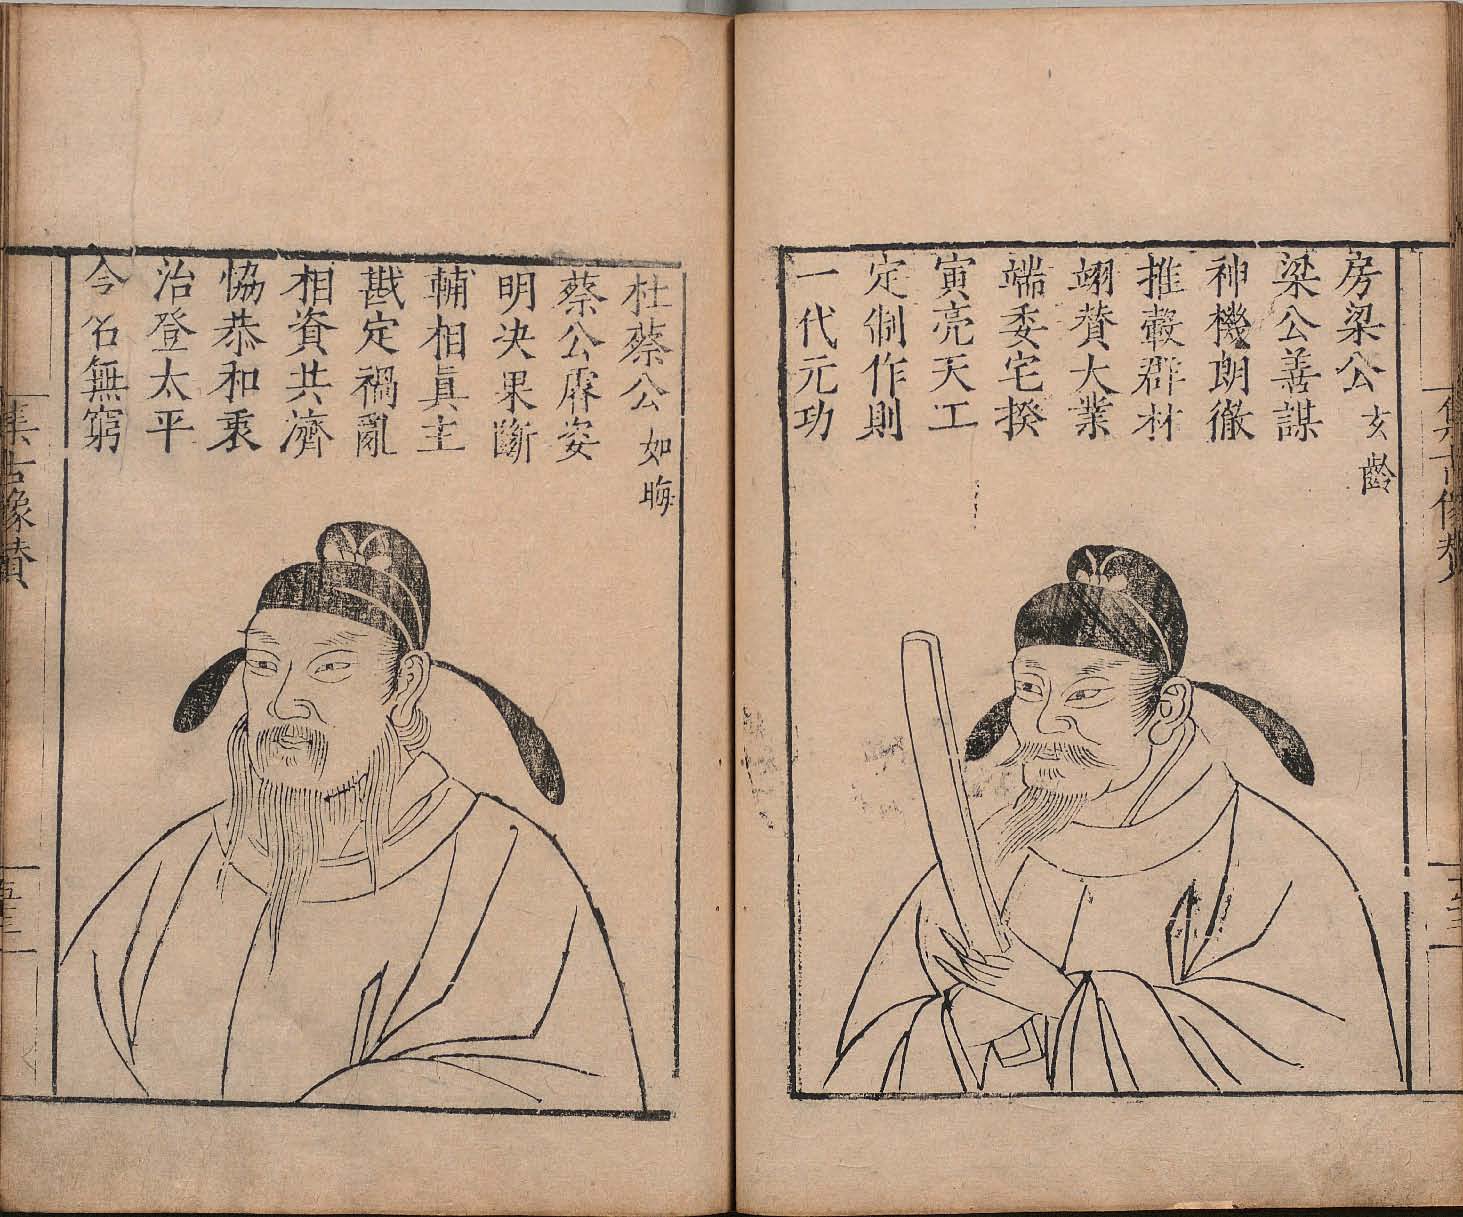 房梁公玄齡
梁公善謀
神機朗徹
推轂群材
翊贊大業
端委宅揆
寅亮天工
定制作則
一代元功
杜蔡公如晦
蔡公膺姿
明决果斷
輔相眞主
戡定禍亂
相資共濟
恊恭和衷
治登太平
令名無窮
集古像贊